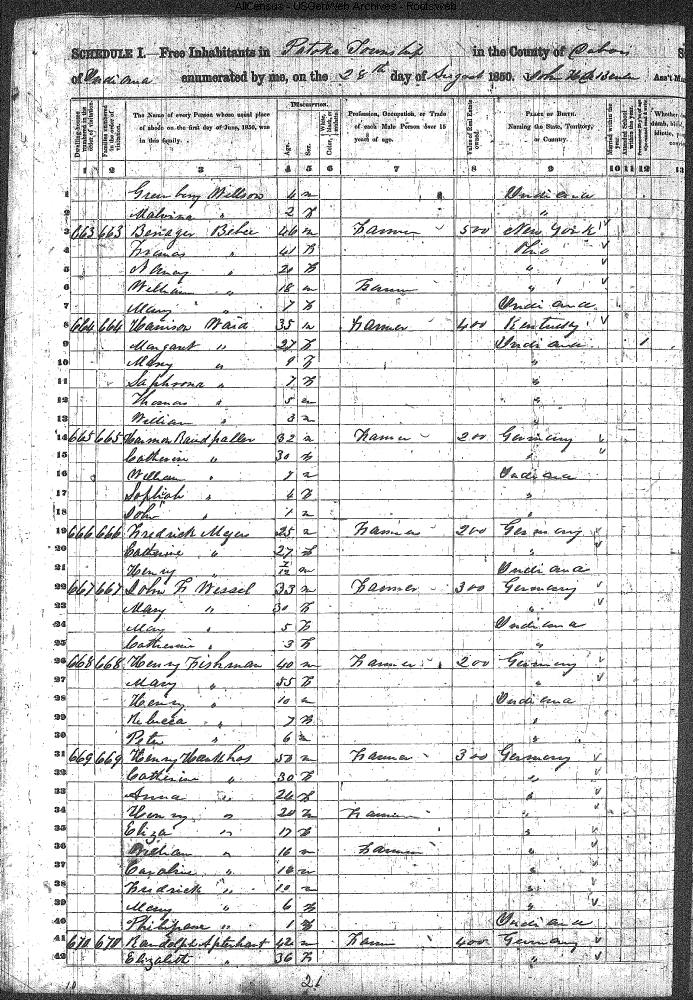 AllCensus - USGenWeb Archives - Rootsweb
SCHEDULE I.—Free Inhabitants in Patoka Township in the County of Dubois S
of Indiana enumerated by me, on the 28th day of August 1850. John Ass't Ma
Dwelling-houses numbered in the order of visitation. Families numbered in the order of visitation. The Name of every Person whose usual place of abode on the first day of June, 1850, was in this family. DESCRIPTION. Age. Sex. White, black, or mulatto. Color, Profession, Occupation, or Trade of each Male Person over 15 years of age. Value of Real Estate owned. PLACE OF BIRTH. Naming the State, Territory, or Country. Married within the year. Attended School within the year. Whether
1 2 3 4 5 6 7 8 9 10 11 12 13
1 Greenberry Willson 4 m Indiana
2 Malvina " 2 f "
3 663 663 Bebee 46 m Farmer 500 New York
4 Frances " 41 f Ohio
5 Nancy " 20 f "
6 William " 18 m Farmer "
7 Mary " 7 f Indiana
8 664 664 Harrison Ward 35 m Farmer 400 Kentucky
9 Margaret " 27 f Indiana 1
10 Mary " 9 f "
11 Saphrona " 7 f "
12 Thomas " 5 m "
13 William " 3 m "
14 665 665 Harmon 32 m Farmer 200 Germany
15 Catherine " 30 f "
16 William " 7 m Indiana
17 Sophiah " 4 f "
18 John " 1 m "
19 666 666 Fredrick Meyers 25 m Farmer 200 Germany
20 Catherine " 27 f "
21 Henry " m Indiana
22 667 667 John F Wessel 33 m Farmer 300 Germany
23 Mary " 30 f "
24 Mary " 5 f Indiana
25 Catherine " 3 f "
26 668 668 Henry Fishman 40 m Farmer 200 Germany
27 Mary " 55 f "
28 Henry " 10 m Indiana
29 Rebecca " 7 f "
30 Peter " 6 m "
31 669 669 Henry 50 m Farmer 300 Germany
32 Catherine " 30 f "
33 Anna " 26 f "
34 Henry " 20 m Farmer "
35 Eliza " 17 f "
36 William " 16 m Farmer "
37 Caroline " "
38 Fredrick " 10 m "
39 Mary " 6 f "
40 " 1 f Indiana
41 670 670 Randolph 42 m Farm 400 Germany
42 Elizabeth " 36 f "